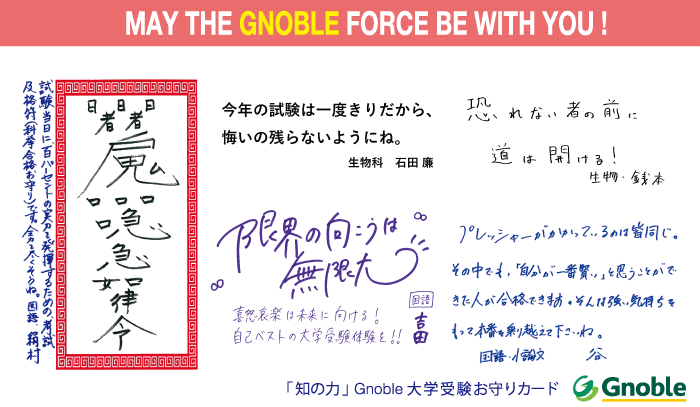 MAY THE GNOBLE FORCE BE WITH YOU !
試験当日に、百パーセントの実力を発揮するための、考試
及格符(科挙合格お守り)です。全力を尽くそうね。国語
日日日
者者
鬼
口口口
急急
如律令
今年の試験は一度きりだから、
悔いの残らないようにね。
生物科 石田 廉
恐れない者の前に
道は開ける!
生物・銭本
限界の向こうは
無限大
喜怒哀楽は未来に向ける!
自己ベストの大学受験体験を!!
国語
吉田
プレッシャーがかかっているのは皆同じ。
その中でも、「自分が一番賢い」と思うことがで
きた人が合格できます。そんな強い気持ちを
もって本番を乗り越えて下さいね。
国語・小論文 谷
「知の力」Gnoble 大学受験お守りカード
Gnoble